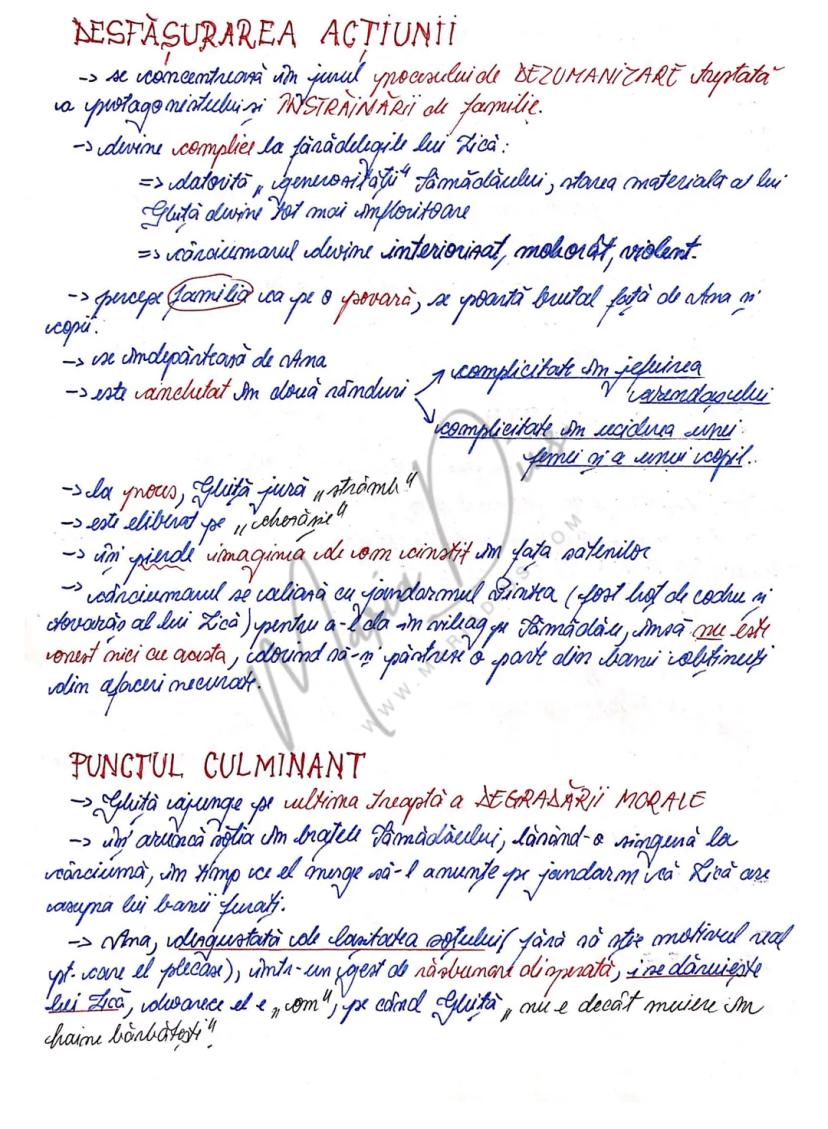 DESFĂȘURAREA ACȚIUNII
-> se concentrează în jurul procesului de DEZUMANIZARE treptată
a protagonistului și ÎNSTRĂINĂRII de familie.
-> devine complice la fărădelegile lui Lică:
=> datorită „generozității" Sămădăului, starea materială a lui
Ghiță devine tot mai înfloritoare
=> cârciumarul devine interiorizat, mohorât, violent.
-> percepe familia ca pe o povară, se poartă brutal față de Ana și
copii.
-> se îndepărtează de Ana
-> este anchetat în două rânduri
complicitate în jefuirea
arendașului
complicitate în uciderea unei
femei și a unui copil.
-> la proces, Ghiță jură „strâmb"
-> este eliberat pe „chezășie"
-> își pierde imaginea de om cinstit în fața sătenilor
-> cârciumarul se aliază cu jandarmul Pintea (fost hoț de codru și
tovarăș al lui Lică) pentru a-l da în vileag pe Sămădău, însă nu este
onest nici cu acesta, dorind să-și păstreze o parte din banii obținuți
din afaceri necurate.
Maria Dius
WWW.MARIADIUS.COM
PUNCTUL CULMINANT
-> Ghiță ajunge pe ultima treaptă a DEGRADĂRII MORALE
-> își aruncă soția în brațele Sămădăului, lăsând-o singură la
cârciumă, în timp ce el merge să-l anunțe pe jandarm că Lică are
asupra lui banii furați.
-> Ana, dezgustată de lașitatea soțului (fără să știe motivul real
pt. care el plecase), într-un gest de răzbunare disperată, i se dăruiește
lui Lică, deoarece el e „om", pe când Ghiță „nu e decât muiere în
haine bărbătești".